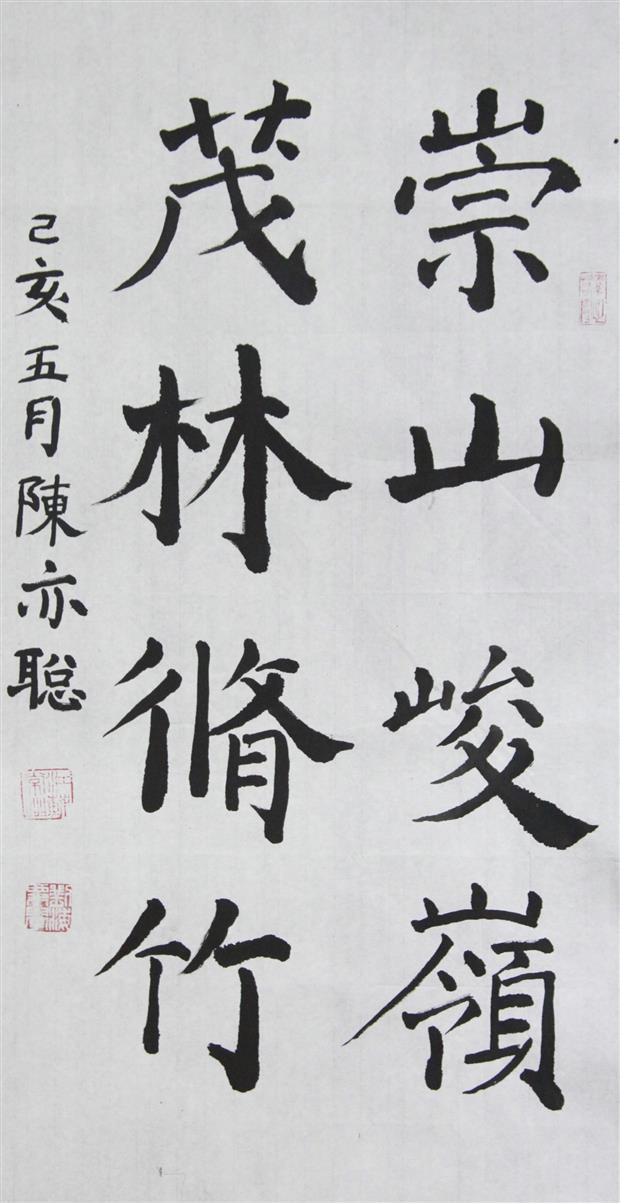 崇山峻嶺
茂林脩竹
己亥五月陳亦聪